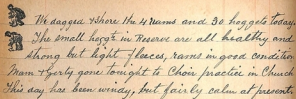 We dagged & shore the 4 rams and 30 hoggets today.
The small hogg's in Reserve are all healthy and
strong but light fleeces, rams in good condition
Mam & Gerty gone tonight to Choir practice in Church
This day has been windy, but fairly calm at present.